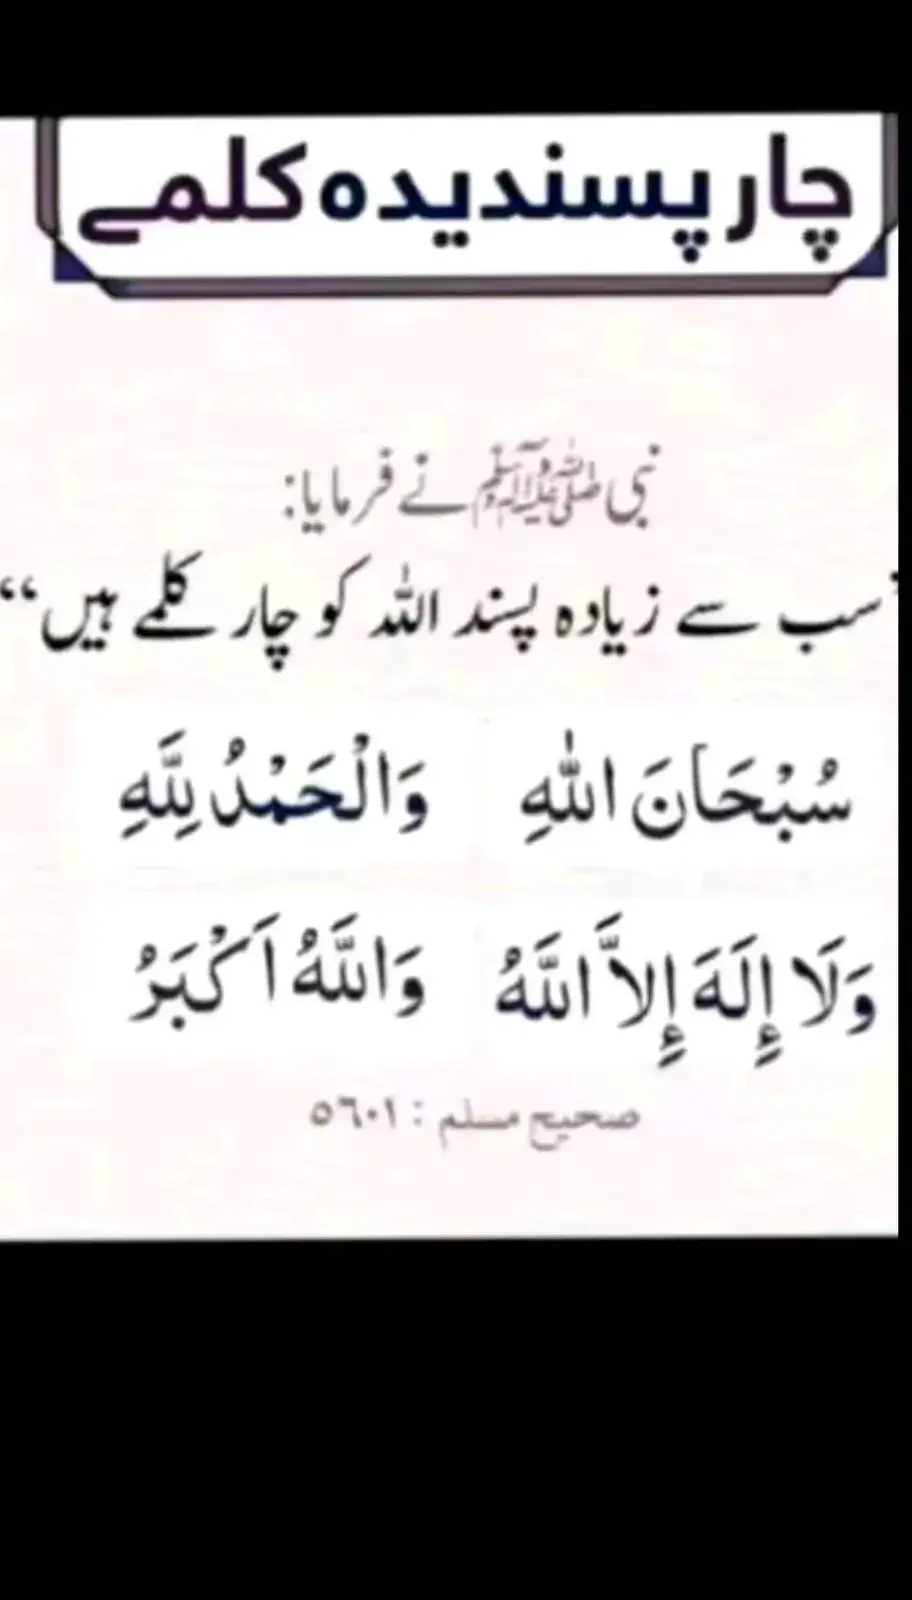 چار پسندیدہ کلمے
نبی ﷺ نے فرمایا:
’سب سے زیادہ پسند اللہ کو چار کلمے ہیں“
سُبْحَانَ اللّٰهِ وَالْحَمْدُ لِلَّهِ
وَلَا إِلَهَ إِلاَّ اللَّهُ وَاللَّهُ اَكْبَرُ
صحیح مسلم : ٥٦٠١